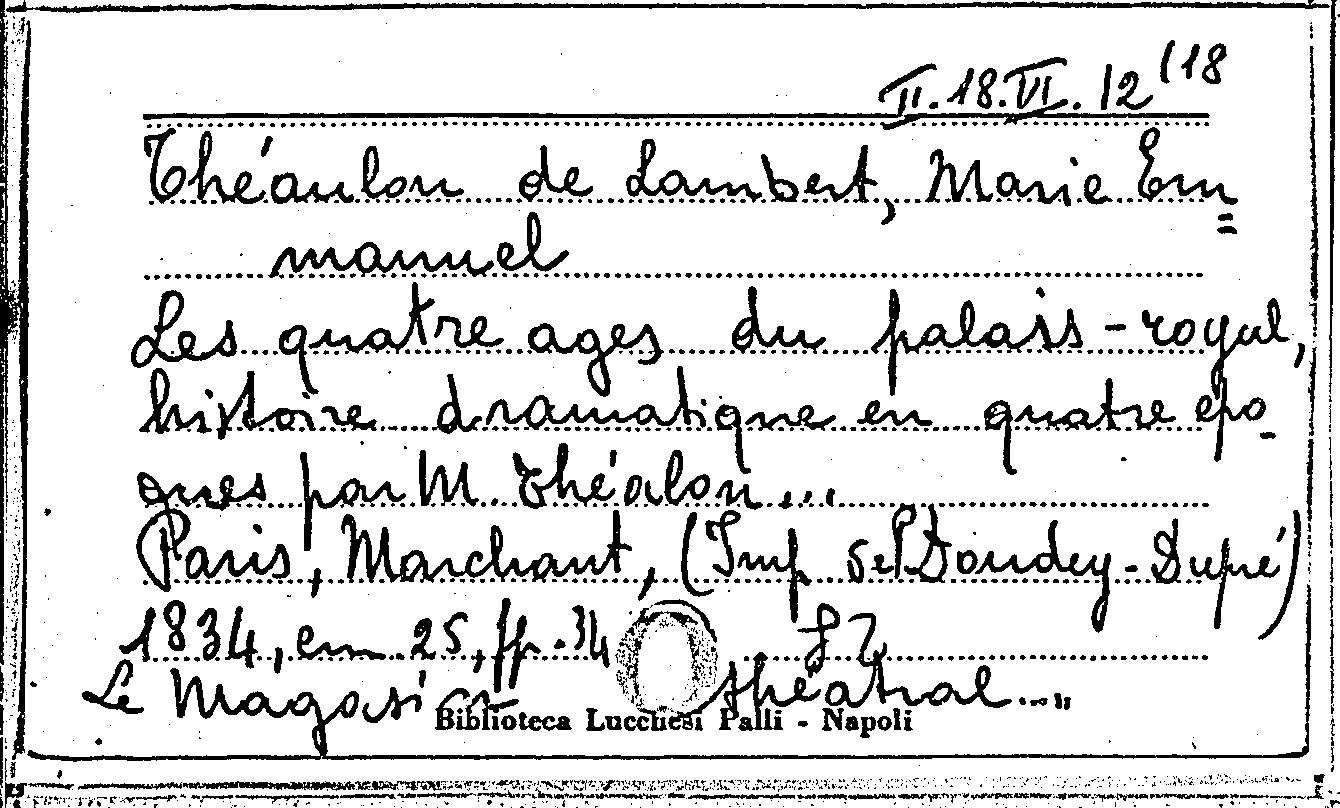 II. 18. VI. 12 (18
Théaulon de Lambert, Marie Em=
manuel
Les quatre ages du palais-royal,
histoire dramatique en quatre épo-
ques par M. Théalon...
Paris, Marchant, (Imp Dondey-Dupré)
1834, cm. 25, pp. 34
Le Magasin théatral..."
Biblioteca Lucchesi Palli - Napoli